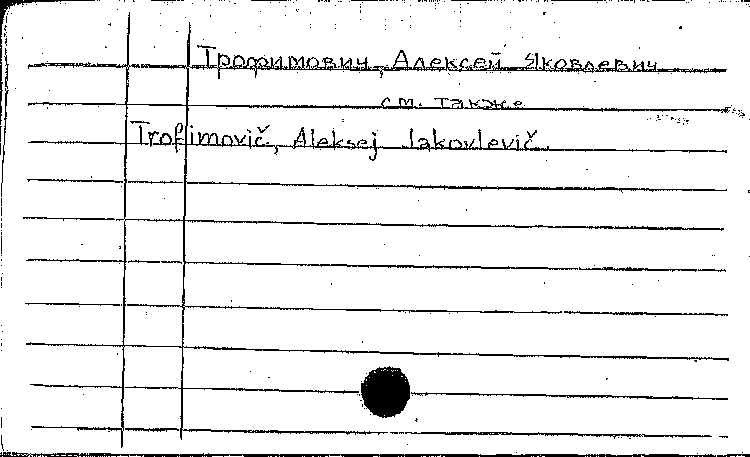 Трофимович, Алексей Яковлевич
см. также
Trofimovič, Aleksej Jakovlevič.